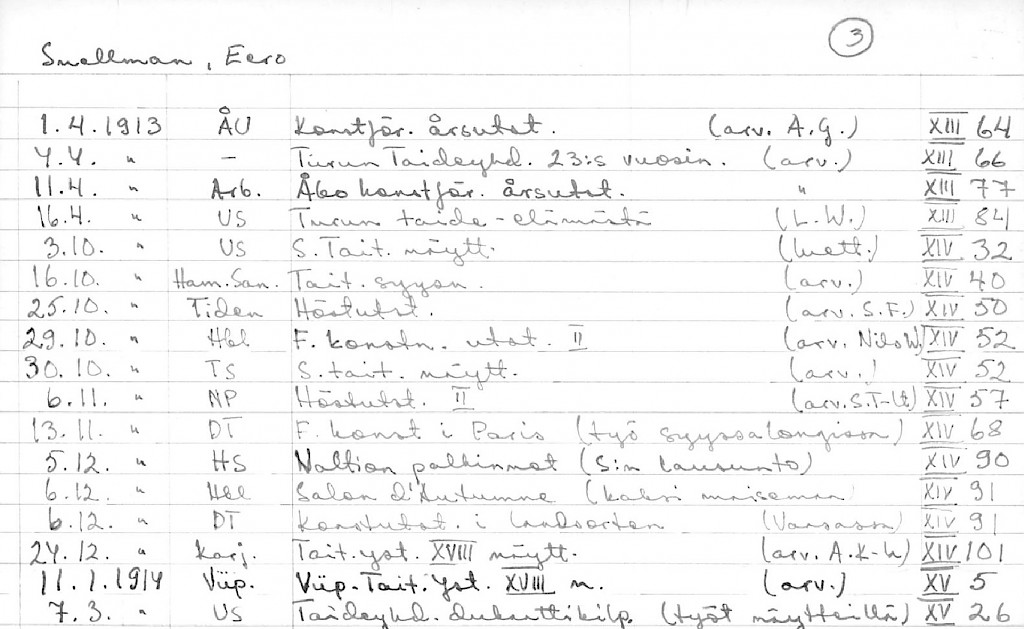 3
Snellman, Eero
1.4.1913 ÅU Konstför. årsutst. (arv. A.G.) XIII 64
4.4. " – Turun Taideyhd. 23:s vuosin. (arv.) XIII 66
11.4. " Arb. Åbo konstför. årsutst. " XIII 77
16.4. " US Turun taide-elämästä (L.W.) XIII 84
3.10. " US S. Tait. näytt. (luett.) XIV 32
16.10. " Ham.San. Tait. syysn. (arv.) XIV 40
25.10. " Tiden Höstutst. (arv. S.F.) XIV 50
29.10. " Hbl F. konstn. utst. II (arv. Nils W) XIV 52
30.10. " TS S. tait. näytt. (arv.) XIV 52
6.11. " NP Höstutst. II (arv. S.T-lt) XIV 57
13.11. " DT F. konst i Paris (työ syyssalongison) XIV 68
5.12. " HS Valtion palkinnot (S:n lausunto) XIV 90
6.12. " Hbl Salon d'Automne (kaksi maisemaa XIV 91
6.12. " DT Konstutst. i landsorten (Vaasassa) XIV 91
27.12. " Karj. Tait.yst. XVIII näytt. (arv. A.K-W) XIV 101
11.1.1914 Viip. Viip. Tait. Yst. XVIII n. (arv.) XV 5
7.3. " US Taideyhd. dukaattikilp. (työt näytteillä) XV 26